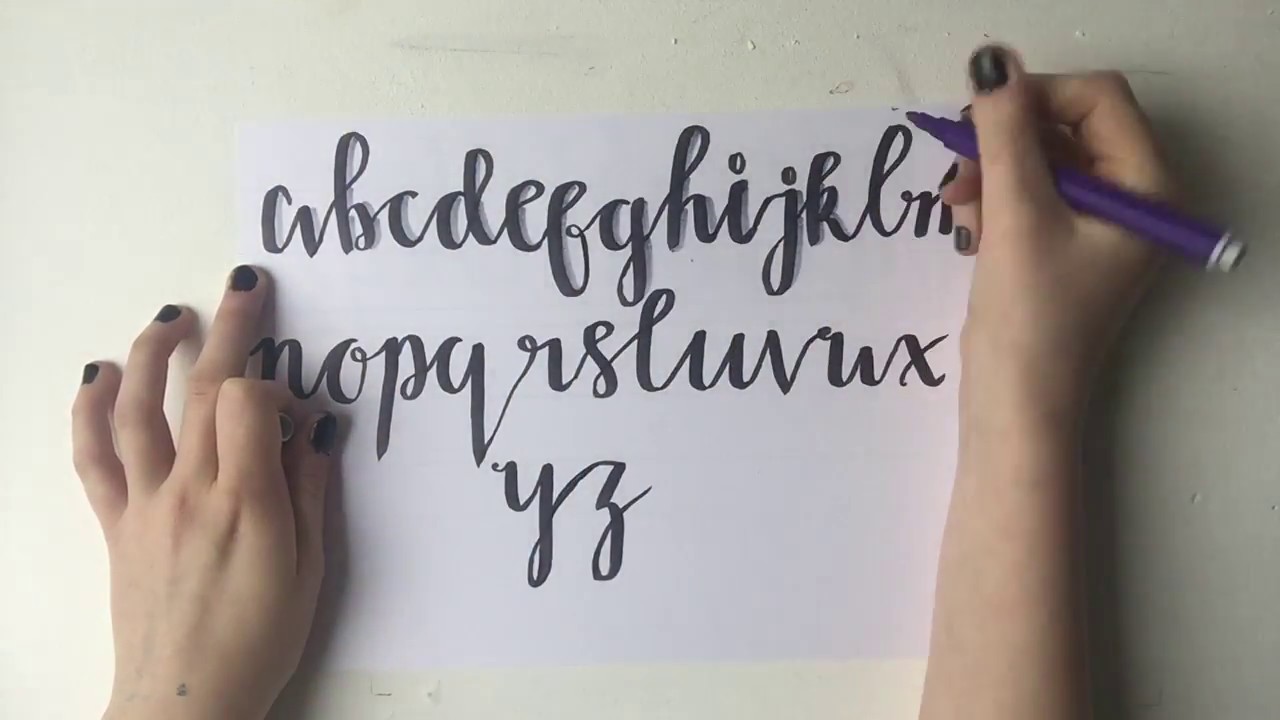 abcdefghijklm
nopqrstuvwx
yz